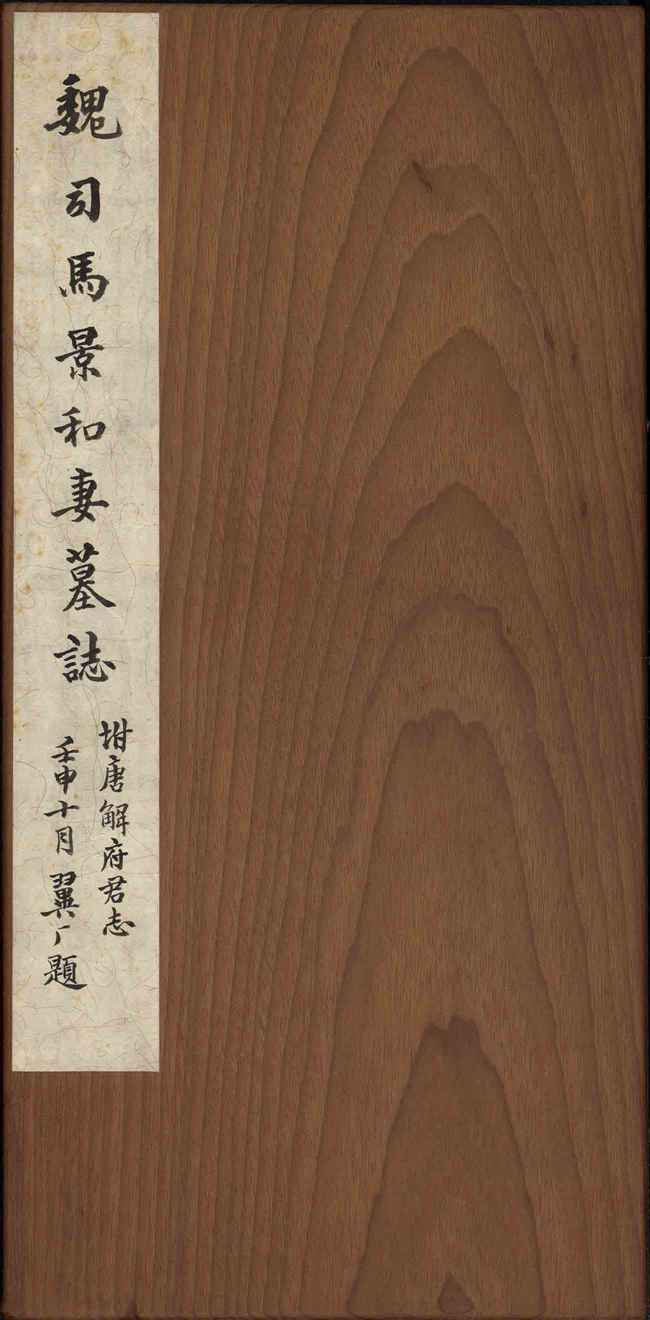 魏司馬景和妻墓誌
坿唐解府君志
壬申十月翼厂題